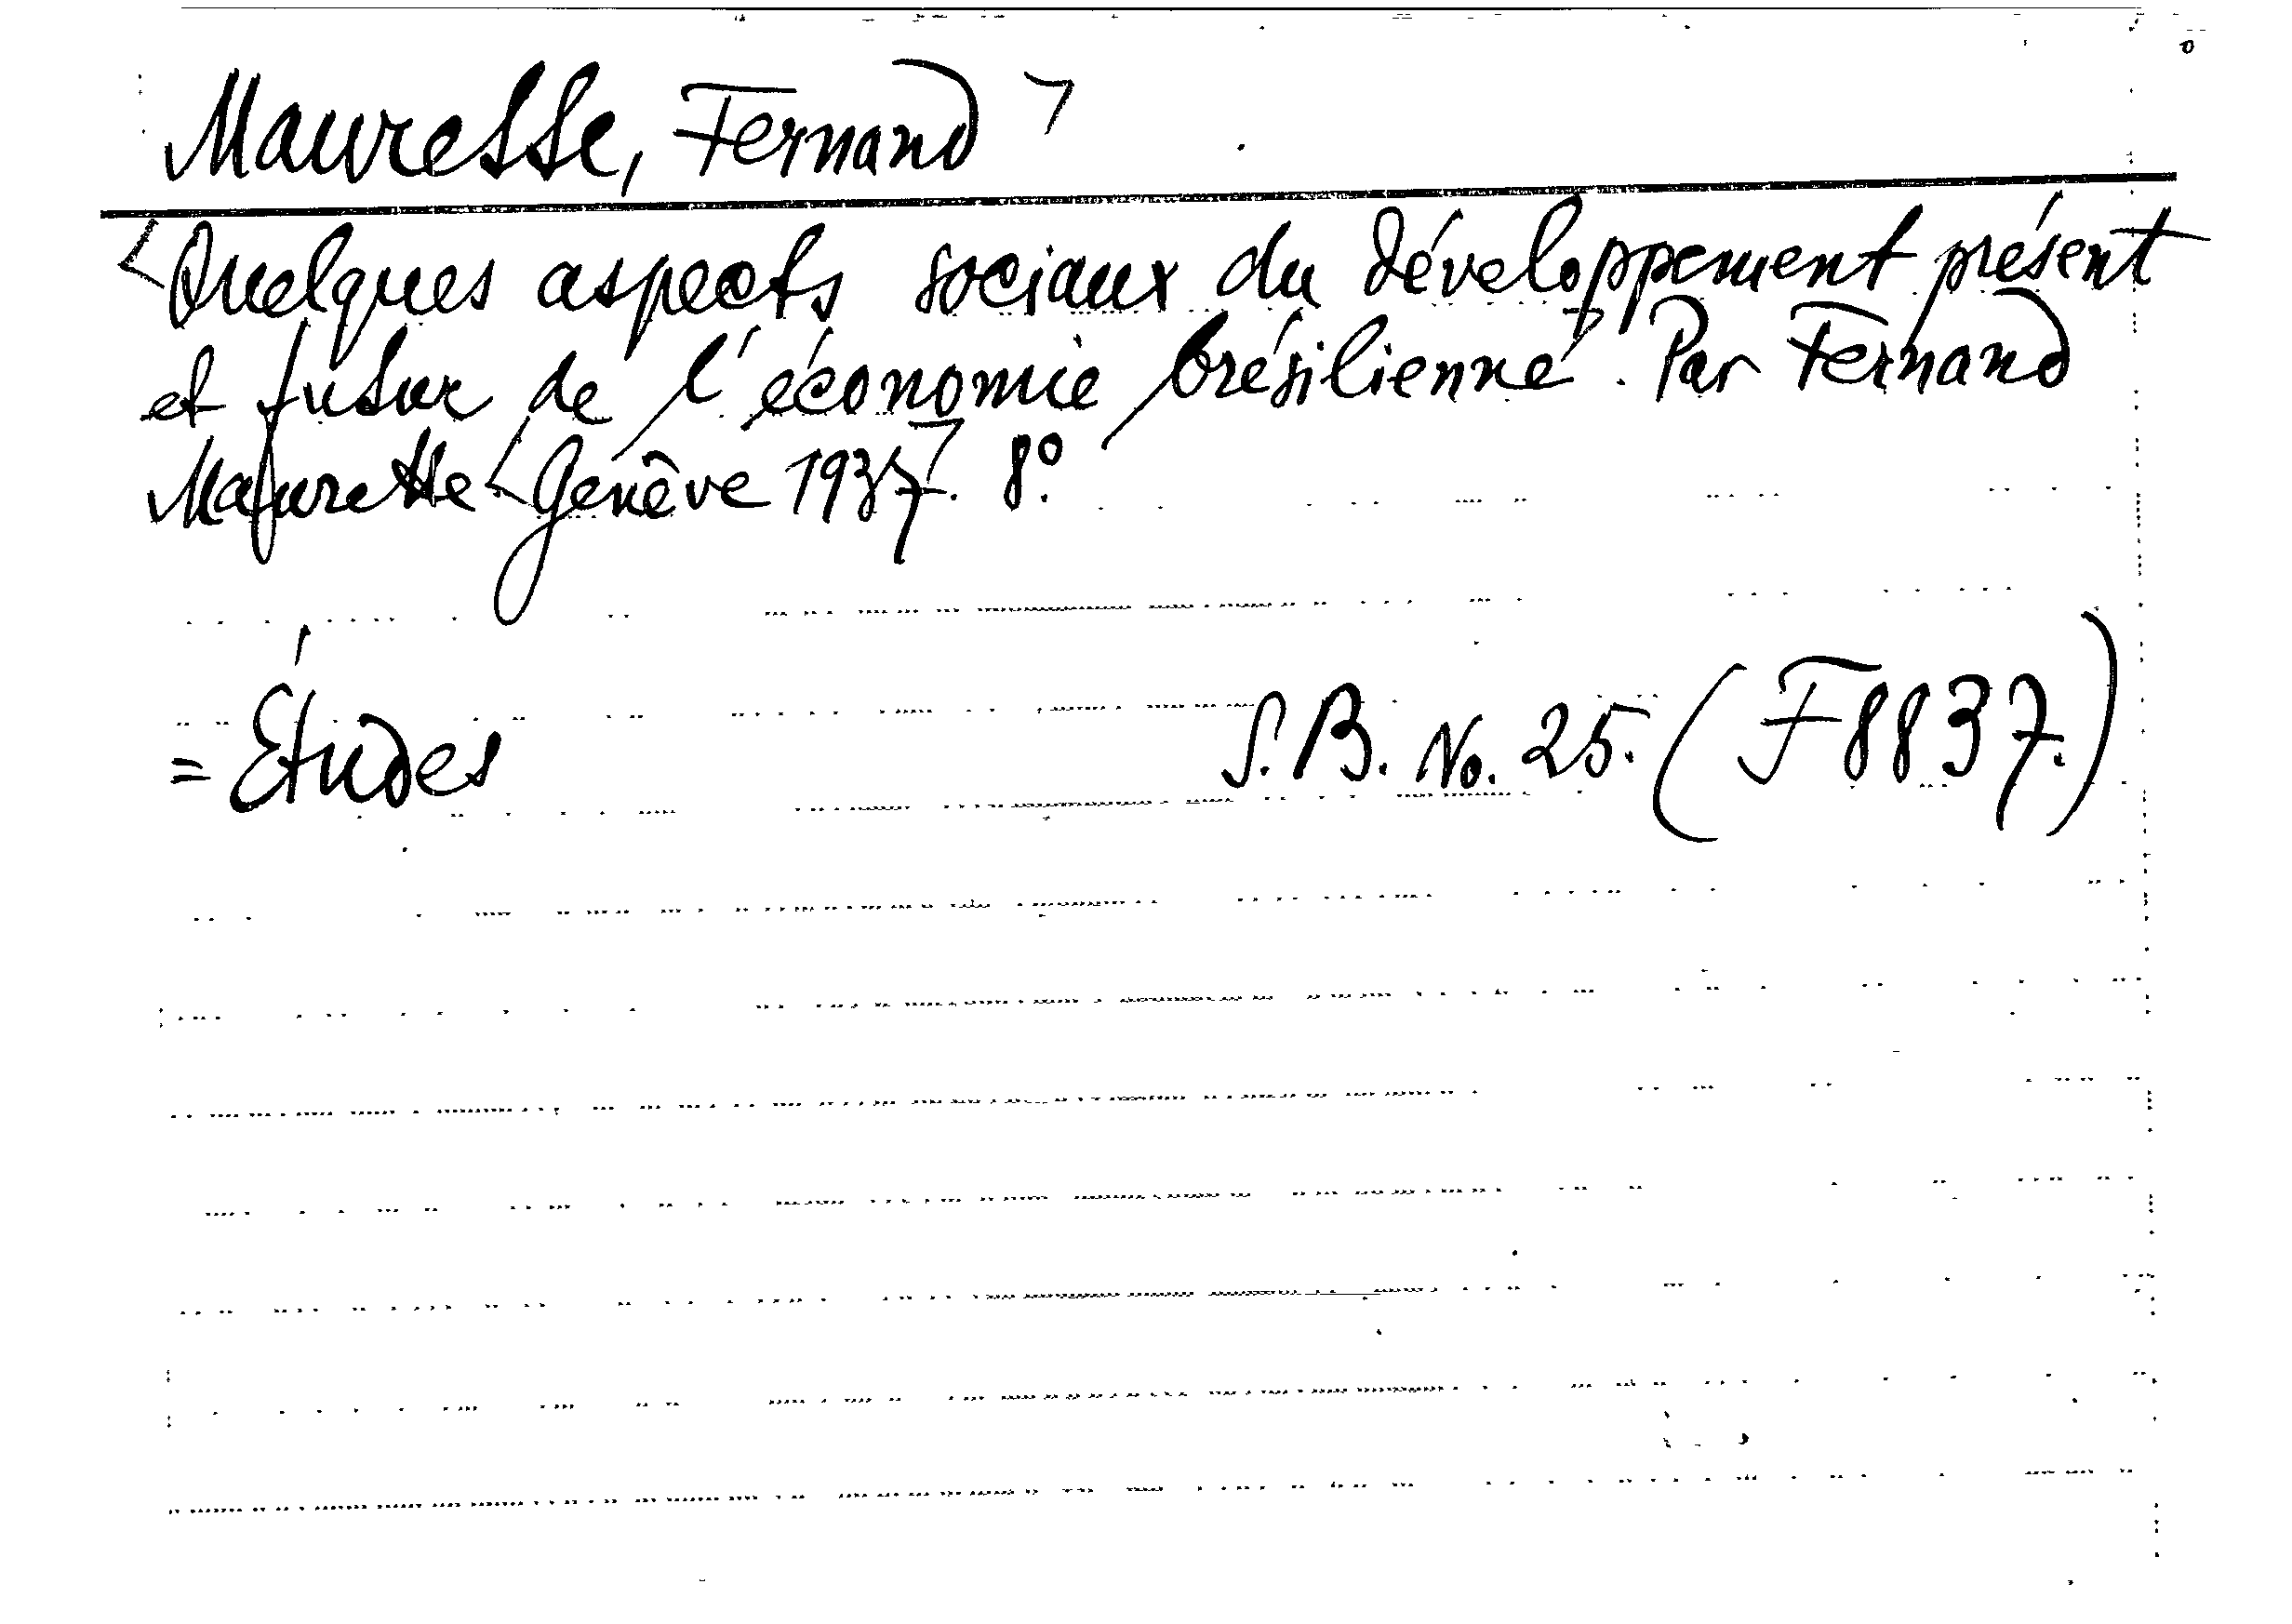 Maurette, Fernand
Quelques aspects sociaux du développement présent
et futur de l'économie brésilienne. Par Fernand
Maurette Genève 1937. 8°.
= Études S.B. No. 25. (F8837.)